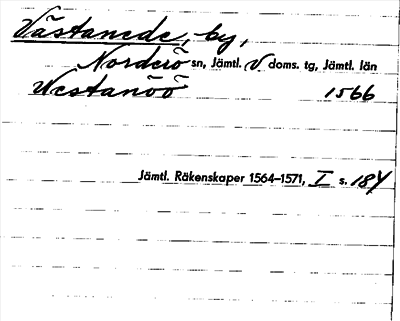 Västanede, by,
Norderö sn, Jämtl. V. doms. tg, Jämtl. län
Westanöö 1566
Jämtl. Räkenskaper 1564–1571, I s. 184